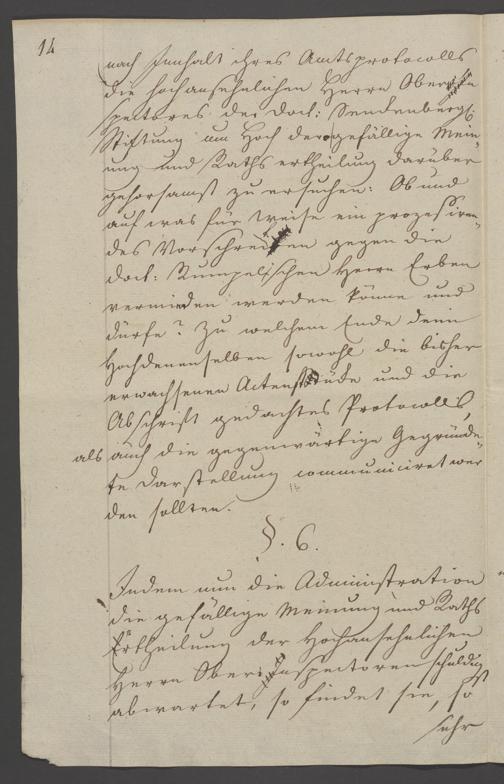 14
nach Innhalt ihres Amtsprotocolls
die hochansehnlichen Herrn Oberin-
spectores der Doct: Senckenbergl.
Stiftung um Hoch derogefällige Mein-
ung und Raths ertheilung darüber
gehorsamst zu ersuchen: Ob und
auf was für Weise ein prozessiren-
des Vorschreiten gegen die
Doct: Rumpelischen Herrn Erben
vermieden werden könne und
dürfe? Zu welchem Ende denn
Hochdenenselben sowohl die bisher
erwachsenen Actenstücke und die
Abschrift gedachtes Protocolls,
als auch die gegenwärtige Gegründe-
te Darstellung communiciret wer
den sollten.
§. 6.
Indem nun die Administration
die gefällige Meinung und Raths
Ertheilung der Hochansehnlichen
Herrn Ober-Inspectoren schuldigst
abwartet, so findet sie, so
sehr